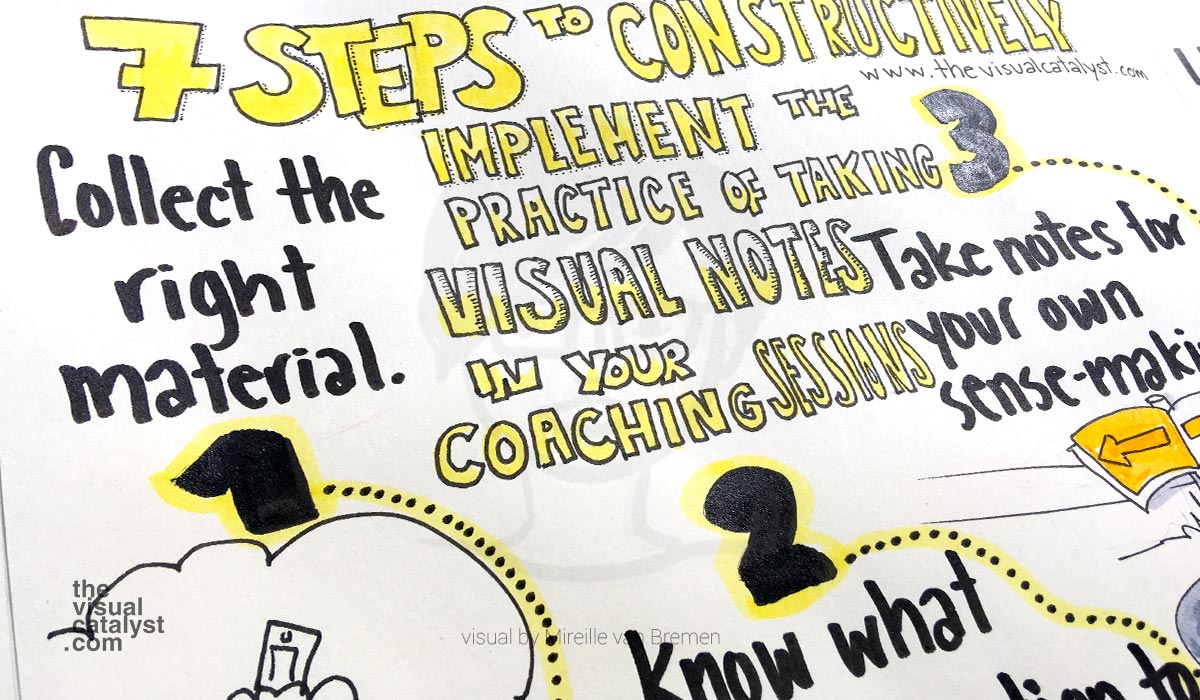 7 STEPS TO CONSTRUCTIVELY
www.thevisualcatalyst.com
IMPLEMENT THE
PRACTICE OF TAKING
VISUAL NOTES
IN YOUR
COACHING SESSIONS
Collect the
right
material.
1
2
Know what
3
Take notes for
your own
the
visual
catalyst
.com
visual by Mireille van Bremen